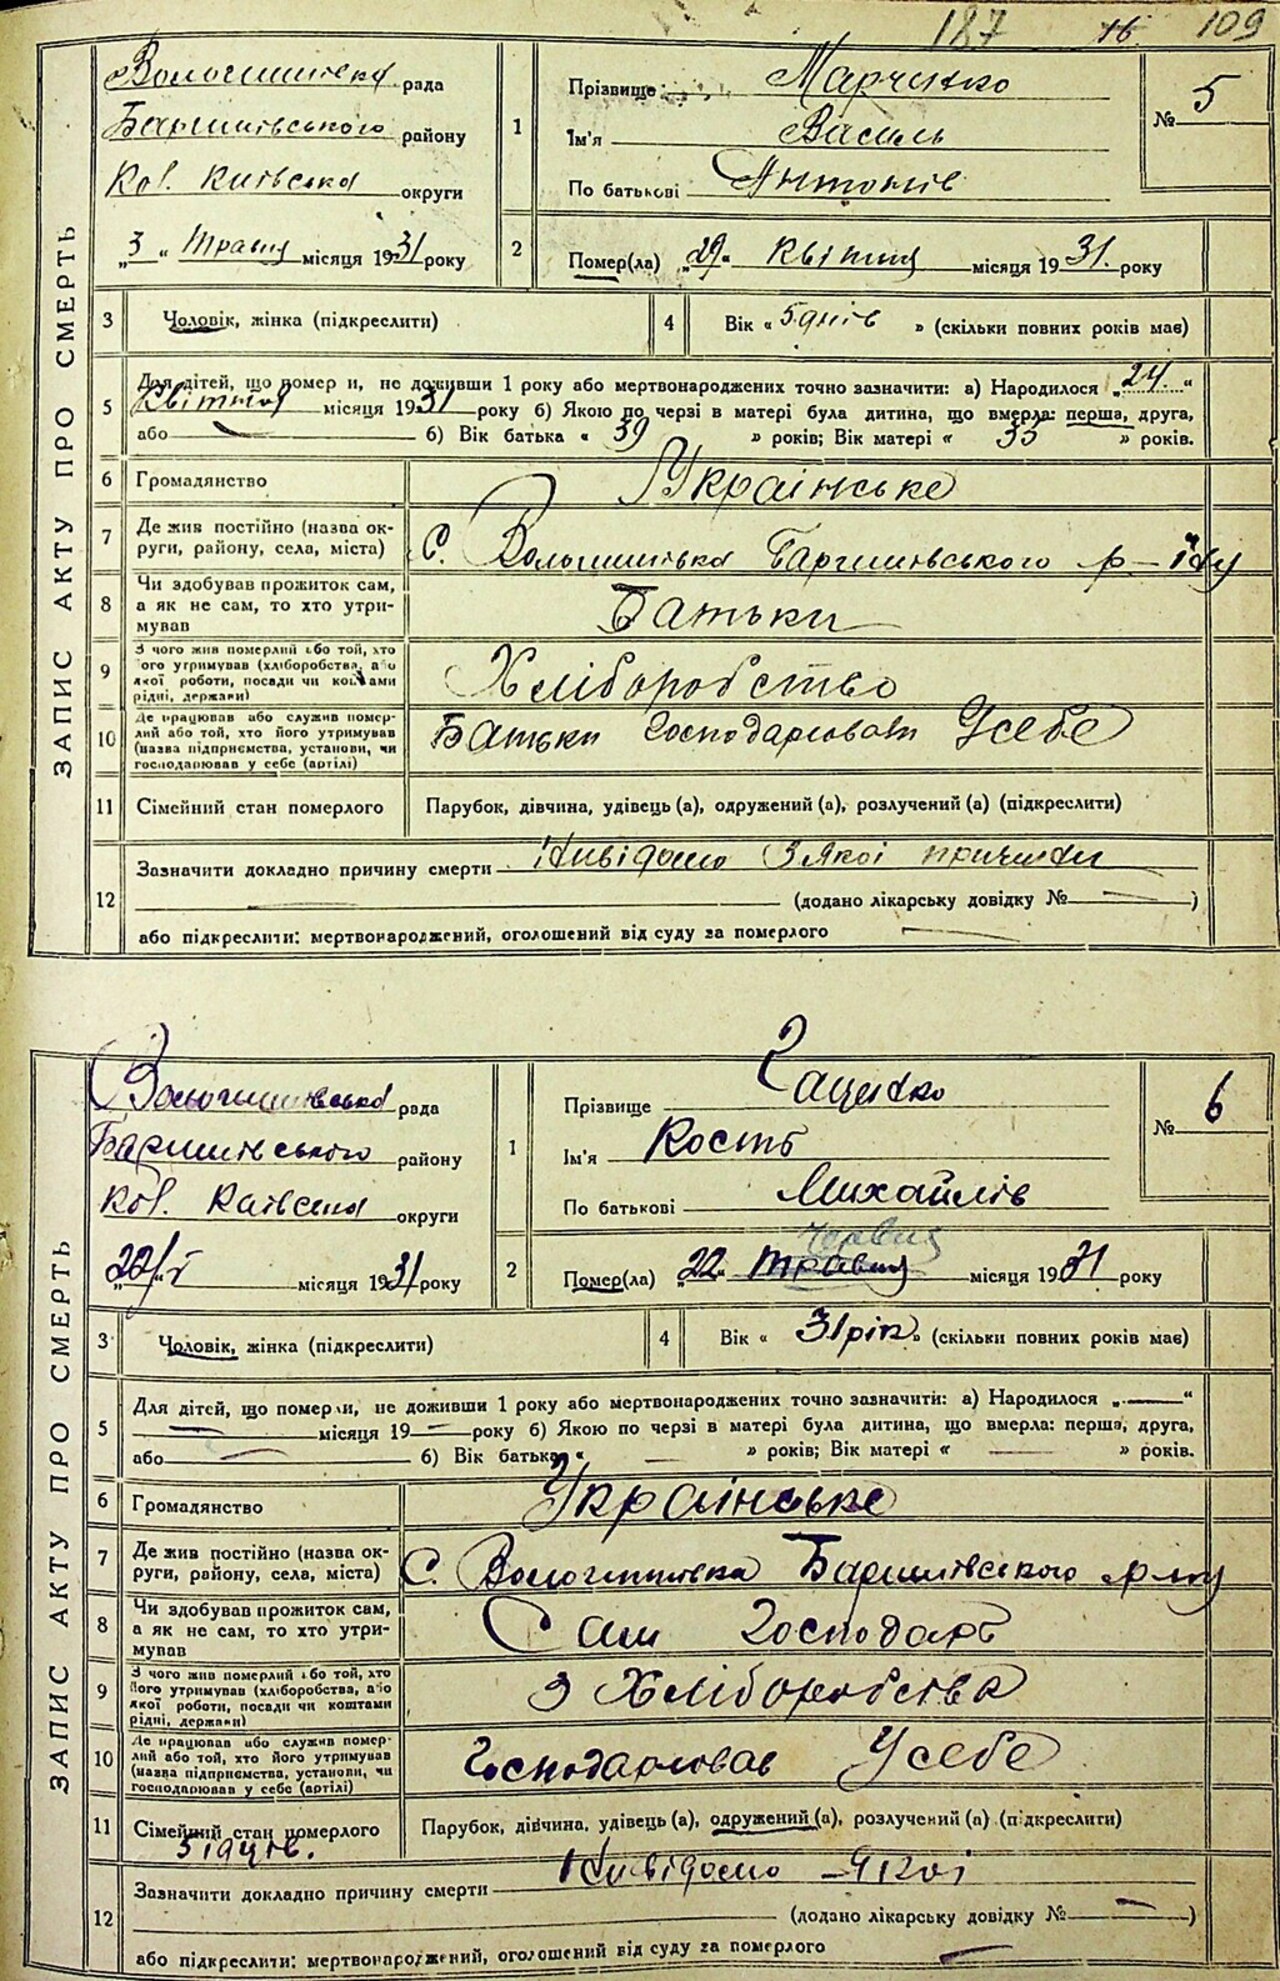 187 16 109
ЗАПИС АКТУ ПРО СМЕРТЬ
Волошинівка рада
Баришівського району
Кол. Київська округи
„3“ Травня місяця 1931 року
1
Прізвище Марченко
Ім'я Василь
По батькові Антонів
№ 5
2
Помер(ла) „29“ Квітня місяця 1931. року
3 Чоловік, жінка (підкреслити)
4 Вік « 5 днів » (скільки повних років має)
5
Для дітей, що померли, не доживши 1 року або мертвонароджених точно зазначити: а) Народилося „24.“
Квітня місяця 1931 року б) Якою по черзі в матері була дитина, що вмерла: перша, друга,
або — б) Вік батька « 39 » років; Вік матері « 35 » років.
6 Громадянство Українське
7
Де жив постійно (назва ок-
руги, району, села, міста) С. Волошинівка Баришівського р-ну
8
Чи здобував прожиток сам,
а як не сам, то хто утри-
мував Батьки
9
З чого жив померлий або той, хто
його утримував (хліборобства, або
якої роботи, посади чи коштами
рідні, держави) Хліборобство
10
Де працював або служив помер-
лий або той, хто його утримував
(назва підприємства, установи, чи
господарював у себе (артілі) Батьки господарювали Усебе
11 Сімейний стан померлого Парубок, дівчина, удівець (а), одружений (а), розлучений (а) (підкреслити)
12
Зазначити докладно причину смерти Невідомо З якої причини
— (додано лікарську довідку № — )
або підкреслити: мертвонароджений, оголошений від суду за померлого —
ЗАПИС АКТУ ПРО СМЕРТЬ
Волошинівська рада
Баришівського району
Кол. Київська округи
„22“/V місяця 1931 року
1
Прізвище Гаценко
Ім'я Кость
По батькові Михайлів
№ 6
червня
2
Помер(ла) „22“ травня місяця 1931 року
3 Чоловік, жінка (підкреслити)
4 Вік « 31 рік » (скільки повних років має)
5
Для дітей, що померли, не доживши 1 року або мертвонароджених точно зазначити: а) Народилося „—“
— місяця 19 — року б) Якою по черзі в матері була дитина, що вмерла: перша, друга,
або — б) Вік батька « — » років; Вік матері « — » років.
6 Громадянство Українське
7
Де жив постійно (назва ок-
руги, району, села, міста) С. Волошинівка Баришівського р-ну
8
Чи здобував прожиток сам,
а як не сам, то хто утри-
мував Сам Господарь
9
З чого жив померлий або той, хто
його утримував (хліборобства, або
якої роботи, посади чи коштами
рідні, держави) З Хліборобства
10
Де працював або служив помер-
лий або той, хто його утримував
(назва підприємства, установи, чи
господарював у себе (артілі) Господарював Усебе
11 Сімейний стан померлого Парубок, дівчина, удівець (а), одружений (а), розлучений (а) (підкреслити)
12
Зазначити докладно причину смерти Невідомо Якої
(додано лікарську довідку № — )
або підкреслити: мертвонароджений, оголошений від суду за померлого —